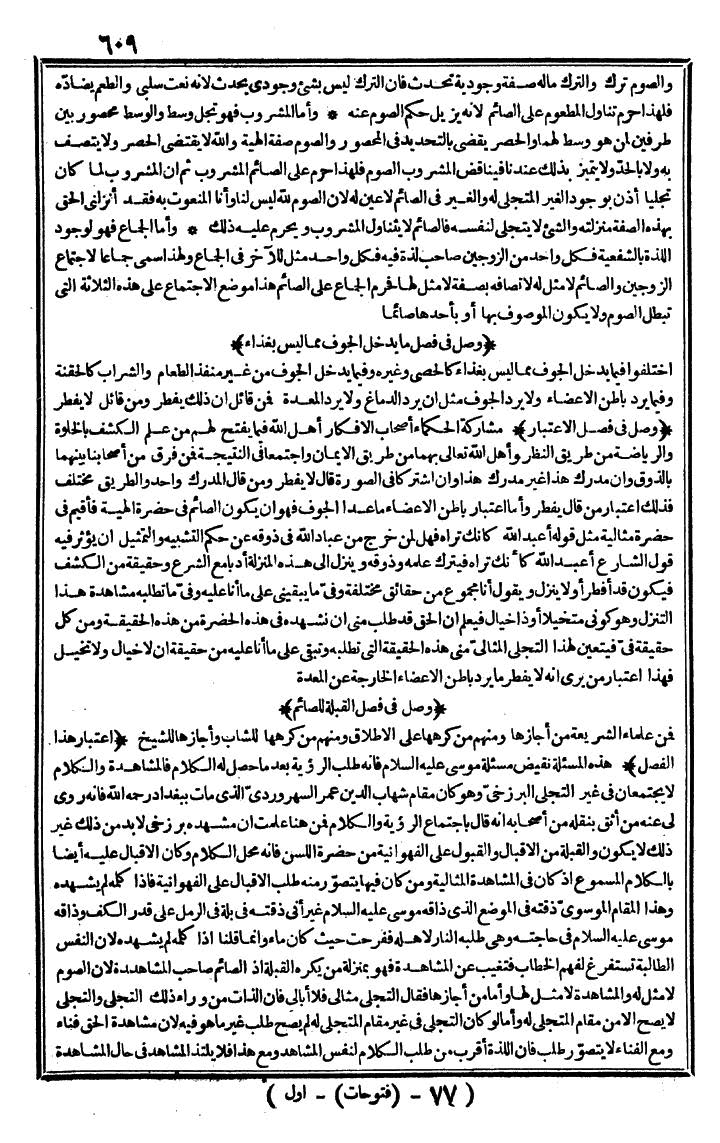 ٦٠٩
والصوم ترك والترك ماله صفة وجودية تحدث فان الترك ليس بشئ وجودى يحدث لانه نعت سلبى والطعم يضاده
فلهذا حرم تناول المطعوم على الصائم لانه يزيل حكم الصوم عنه * وأما المشروب فهو تجل وسط والوسط محصور بين
طرفين لمن هو وسط لهما والحصر يقضى بالتحديد فى المحصور والصوم صفة الهية والله لا يقتضى الحصر ولا يتصف
به ولا بالحد ولا يتميز بذلك عند نا فيناقض المشروب الصوم فلهذا حرم على الصائم المشروب ثم ان المشروب لما كان
تجليا أذن بوجود الغير المتجلى له والغير فى الصائم لا عين له لان الصوم لله ليس لنا وأنا المنعوت به فقد أنزلنى الحق
بهذه الصفة منزلته والشئ لا يتجلى لنفسه فالصائم لا يتناول المشروب ويحرم عليه ذلك * وأما الجماع فهو لوجود
اللذة بالشفعية فكل واحد من الزوجين صاحب لذة فيه فكل واحد مثل للآخر فى الجماع ولهذا سمى جماعا لاجتماع
الزوجين والصائم لا مثل له لاتصافه بصفة لا مثل لها فحرم الجماع على الصائم هذا موضع الاجتماع على هذه الثلاثة التى
تبطل الصوم ولا يكون الموصوف بها أو بأحدها صائما
﴿وصل فى فصل ما يدخل الجوف مما ليس بغذاء﴾
اختلفوا فيما يدخل الجوف مما ليس بغذاء كالحصى وغيره وفيما يدخل الجوف من غير منفذ الطعام والشراب كالحقنة
وفيما يرد باطن الاعضاء ولا يرد الجوف مثل ان يرد الدماغ ولا يرد المعدة فمن قائل ان ذلك يفطر ومن قائل لا يفطر
﴿وصل فى فصل الاعتبار﴾ مشاركة الحكماء أصحاب الافكار أهل الله فيما يفتح لهم من علم الكشف بالخلوة
والرياضة من طريق النظر وأهل الله تعالى بهما من طريق الايمان واجتمعا فى النتيجة فمن فرق من أصحابنا بينهما
بالذوق وان مدرك هذا غير مدرك هذا وان اشتركا فى الصورة قال لا يفطر ومن قال المدرك واحد والطريق مختلف
فذلك اعتبار من قال يفطر وأما اعتبار باطن الاعضاء ما عدا الجوف فهو ان يكون الصائم فى حضرة الهية فأقيم فى
حضرة مثالية مثل قوله أعبد الله كانك تراه فهل لمن خرج من عباد الله فى ذوقه عن حكم التشبيه والتمثيل ان يؤثر فيه
قول الشارع أعبد الله كأنك تراه فيترك علمه وذوقه وينزل الى هذه المنزلة أدبا مع الشرع وحقيقة من الكشف
فيكون قد أفطر أولا ينزل ويقول أنا مجموع من حقائق مختلفة وفىّ ما يبقينى على ما أنا عليه وفىّ ما تطلبه مشاهدة هذا
التنزل وهو كونى متخيلا أو ذا خيال فيعلم ان الحق قد طلب منى ان نشهده فى هذه الحضرة من هذه الحقيقة ومن كل
حقيقة فىّ فيتعين لهذا التجلى المثالى منى هذه الحقيقة التى تطلبه وتبقى على ما أنا عليه من حقيقة ان لا خيال ولا تخيل
فهذا اعتبار من يرى انه لا يفطر ما يرد باطن الاعضاء الخارجة عن المعدة
﴿وصل فى فصل القبلة للصائم﴾
فمن علماء الشريعة من أجازها ومنهم من كرهها على الاطلاق ومنهم من كرهها للشاب وأجازها للشيخ ﴿اعتبار هذا
الفصل﴾ هذه المسئلة نقيض مسئلة موسى عليه السلام فانه طلب الرؤية بعد ما حصل له الكلام فالمشاهدة والكلام
لا يجتمعان فى غير التجلى البرزخىّ وهو كان مقام شهاب الدين عمر السهروردى الذى مات ببغداد رحمه الله فانه روى
لى عنه من أثق بنقله من أصحابه انه قال باجتماع الرؤية والكلام فمن هنا علمت ان مشهده برزخى لابد من ذلك غير
ذلك لا يكون والقبلة من الاقبال والقبول على الفهوانية من حضرة اللسن فانه محل الكلام وكان الاقبال عليه أيضا
بالكلام المسموع اذ كان فى المشاهدة المثالية ومن كان فيها يتصوّر منه طلب الاقبال على الفهوانية فاذا كلمه لم يشهده
وهذا المقام الموسوىّ ذقته فى الموضع الذى ذاقه موسى عليه السلام غير أنى ذقته فى بلة فى الرمل على قدر الكف وذاقه
موسى عليه السلام فى حاجته وهى طلبه النار لاهله ففرحت حيث كان ماء وانما قلنا اذا كلمه لم يشهده لان النفس
الطالبة تستفرغ لفهم الخطاب فتغيب عن المشاهدة فهو بمنزلة من يكره القبلة اذ الصائم صاحب المشاهدة لان الصوم
لا مثل له والمشاهدة لا مثل لها وأما من أجازها فقال التجلى مثالى فلا أبالى فان الذات من وراء ذلك التجلى والتجلى
لا يصح الامن مقام المتجلى له وأما لو كان التجلى فى غير مقام المتجلى له لم يصح طلب غير ما هو فيه لان مشاهدة الحق فناء
ومع الفناء لا يتصوّر طلب فان اللذة أقرب من طلب الكلام لنفس المشاهد ومع هذا فلا يلتذ المشاهد فى حال المشاهدة
( ٧٧ - (فتوحات) - اول )